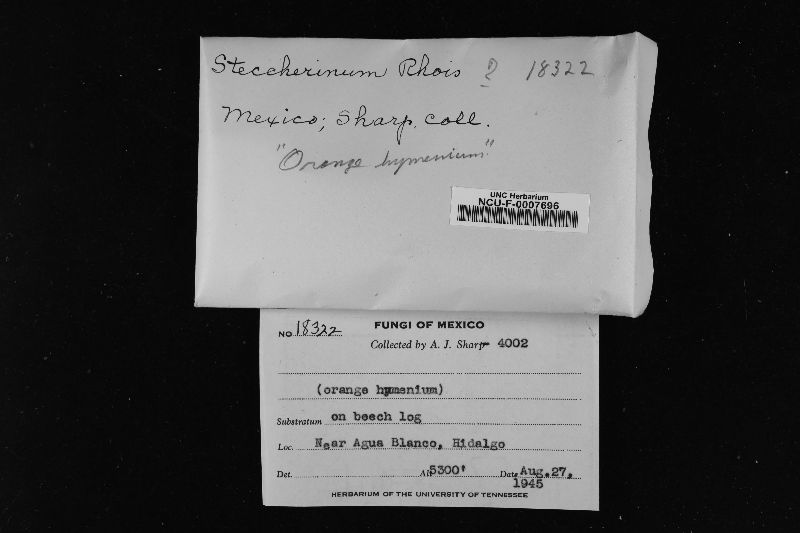 Steccherinum Rhois ? 18322
Mexico; Sharp, coll.
"Orange hymenium"
UNC Herbarium
NCU-F-0007696
No. 18322 FUNGI OF MEXICO
Collected by A. J. Sharp 4002
(orange hymenium)
Substratum on beech log
Loc. Near Agua Blanco, Hidalgo
Det. Alt 5300' Date Aug. 27,
1945
HERBARIUM OF THE UNIVERSITY OF TENNESSEE